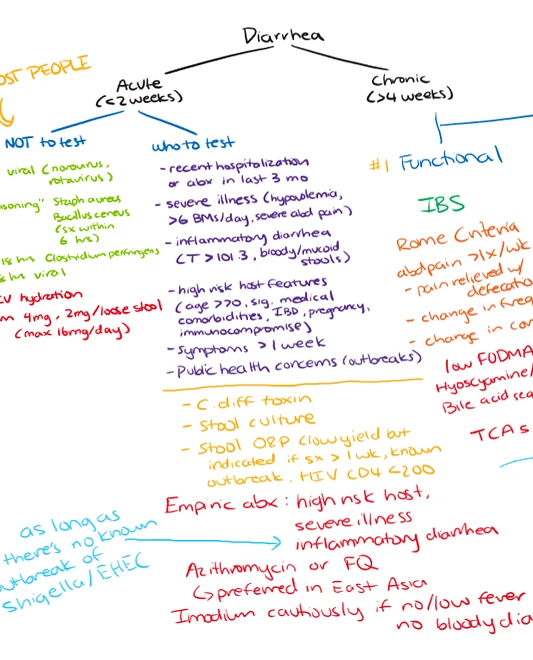 Diarrhea
OST PEOPLE
Acute
(<2 weeks)
Chronic
(>4 weeks)
NOT to test
viral (norovirus,
rotavirus)
Staph aureus
Bacillus cereus
(sx within
6 hrs)
Clostridium perfringens
hrs viral
hydration
4mg, 2mg/loose stool
(max 16mg/day)
who to test
- recent hospitalization
or abx in last 3 mo
- severe illness (hypovolemia,
>6 BMs/day, severe abd pain)
- inflammatory diarrhea
(T >101.3, bloody/mucoid
stools)
- high risk host features
(age >70, sig. medical
comorbidities, IBD, pregnancy,
immunocompromise)
- symptoms >1 week
- Public health concerns (outbreaks)
- C. diff toxin
- Stool culture
- Stool O&P (low yield but
indicated if sx > 1 wk, known
outbreak, HIV CD4 <200
Empiric abx: high risk host,
severe illness
inflammatory diarrhea
as long as
there's no known
outbreak of
Shigella/EHEC
Azithromycin or FQ
↳ preferred in East Asia
Imodium cautiously if no/low fever
no bloody dia
#1 Functional
IBS
Rome Criteria
abd pain >1x/wk
- pain relieved w/
defecatio
- change in freq
- change in con
low FODMA
Hyoscyamine/
Bile acid sea
TCAs